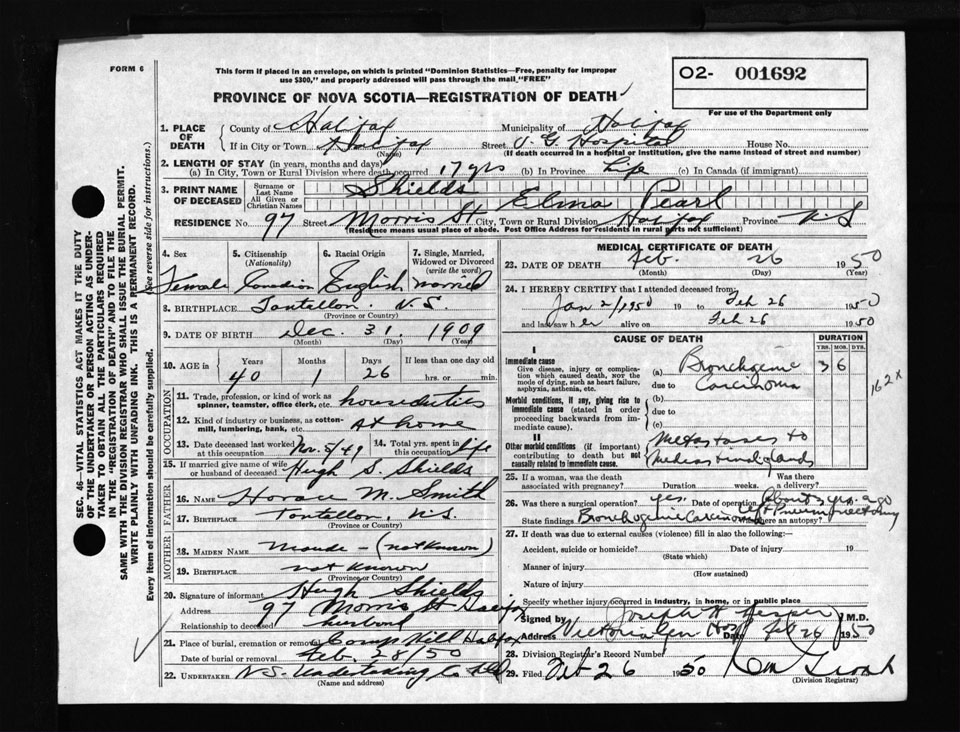 FORM 6
This form if placed in an envelope, on which is printed "Dominion Statistics—Free, penalty for improper
use $300," and properly addressed will pass through the mail "FREE"
O2- 001692
For use of the Department only
PROVINCE OF NOVA SCOTIA—REGISTRATION OF DEATH
1. PLACE OF DEATH
County of Halifax Municipality of Halifax
If in City or Town Halifax Street V. G. Hospital House No.
(Name) (If death occurred in a hospital or institution, give the name instead of street and number)
2. LENGTH OF STAY (in years, months and days)
(a) In City, Town or Rural Division where death occurred 17 yrs (b) In Province Life (c) In Canada (if immigrant)
3. PRINT NAME OF DECEASED
Surname or Last Name Shields
All Given or Christian Names Elma Pearl
RESIDENCE No. 97 Street Morris St City, Town or Rural Division Halifax Province N.S
(Residence means usual place of abode. Post Office Address for residents in rural parts not sufficient)
4. Sex Female
5. Citizenship (Nationality) Canadian
6. Racial Origin English
7. Single, Married, Widowed or Divorced (write the word) married
8. BIRTHPLACE Tantallon. N.S.
(Province or Country)
9. DATE OF BIRTH Dec. 31. 1909
(Month) (Day) (Year)
10. AGE in Years Months Days If less than one day old
40 1 26 hrs. or min.
OCCUPATION
11. Trade, profession or kind of work as spinner, teamster, office clerk, etc. houseduties
12. Kind of industry or business, as cotton-mill, lumbering, bank, etc. At home
13. Date deceased last worked at this occupation Nov. 5/49
14. Total yrs. spent in this occupation life
15. If married give name of wife or husband of deceased Hugh S. Shields
FATHER
16. NAME Horace M. Smith
17. BIRTHPLACE Tantallon, N.S.
(Province or Country)
MOTHER
18. MAIDEN NAME Maude - (not known)
19. BIRTHPLACE not known
(Province or Country)
20. Signature of informant Hugh Shields
Address 97 Morris St Halifax
Relationship to deceased husband
21. Place of burial, cremation or removal Camp Hill Halifax
Date of burial or removal Feb. 28/50
22. UNDERTAKER N.S. Undertaking Co Ltd
(Name and address)
MEDICAL CERTIFICATE OF DEATH
23. DATE OF DEATH Feb. 26 1950
(Month) (Day) (Year)
24. I HEREBY CERTIFY that I attended deceased from
Jan 2/1950 19 to Feb 26 1950
and last saw her alive on Feb 26 1950
CAUSE OF DEATH
DURATION
YRS. MOS. DYS.
I
Immediate cause
Give disease, injury or complication which caused death, NOT the mode of dying, such as heart failure, asphyxia, asthenia, etc.
(a) Bronchogenic 3 6
due to Carcinoma
162x
Morbid conditions, if any, giving rise to immediate cause (stated in order proceeding backwards from immediate cause).
(b)
due to
(c)
II
Other morbid conditions (if important) contributing to death but not causally related to immediate cause.
Metastases to
Mediastinal glands
25. If a woman, was the death associated with pregnancy? Duration weeks. Was there a delivery?
26. Was there a surgical operation? yes. Date of operation (about 3 yrs. ago
left Pneumonectomy
State findings Bronchogenic Carcinoma Was there an autopsy?
27. If death was due to external causes (violence) fill in also the following:
Accident, suicide or homicide? Date of injury 19
(State which)
Manner of injury
(How sustained)
Nature of injury
Specify whether injury occurred in industry, in home, or in public place
Signed by M.D.
Address Victoria Gen Hos Date Feb 26 1950
28. Division Registrar's Record Number
29. Filed Feb 26 1950
(Division Registrar)
SEC. 46—VITAL STATISTICS ACT MAKES IT THE DUTY
OF THE UNDERTAKER OR PERSON ACTING AS UNDERTAKER
TO OBTAIN ALL THE PARTICULARS REQUIRED
IN THE "REGISTRATION OF DEATH" AND TO FILE THE
SAME WITH THE DIVISION REGISTRAR WHO SHALL ISSUE THE BURIAL PERMIT.
WRITE PLAINLY WITH UNFADING INK. THIS IS A PERMANENT RECORD.
Every item of information should be carefully supplied. (See reverse side for instructions.)